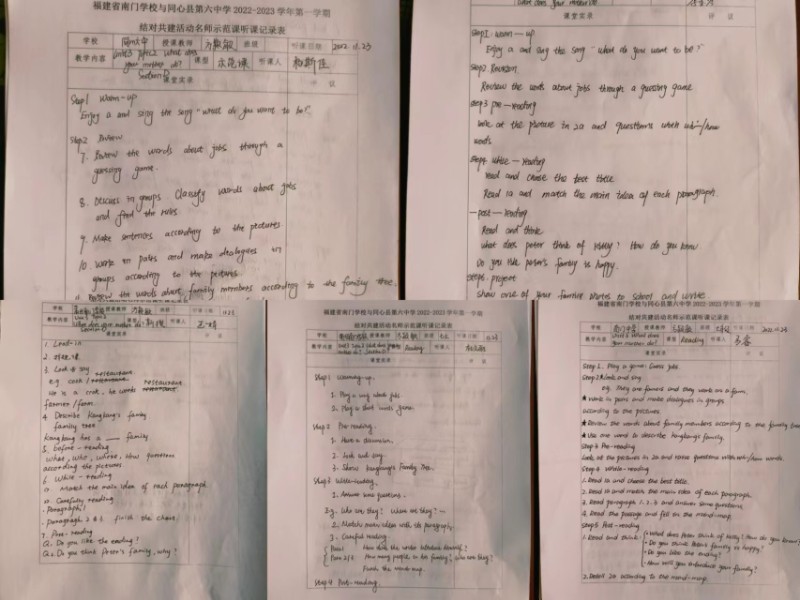 福建省南门学校与同心县第六中学2022-2023学年第一学期
结对共建活动名师示范课听课记录表
学校 授课教师 班级 听课日期 2022.11.23
教学内容 Unit3 Topic2 What does your mother do? 课型 听课人
Section D
课堂实录 评议
Step1 Warm-up
Enjoy a and sing the song "what do you want to be?"
Step2 Review
7. Review the words about jobs through a
guessing game.
8. Discuss in groups. Classify words about jobs
and find the rules.
9. Make sentences according to the pictures
10. work in pairs and make dialogues in
groups according to the pictures.
Review the words about family members according to the family tree.
课堂实录 评议
Step1. Warm-up
Enjoy a and sing the song "what do you want to be?"
Step2. Revision
Review the words about jobs through a guessing game
Step3 pre-reading
look at the picture in 2a and questions with wh-/how
words
Step4. while-reading
Read and choose the best title
Read 1a and match the main idea of each paragraph.
-post-reading
Read and think
what does peter think of kitty? How do you know
Do you think peter's family is happy.
Step6. project
show one of your family photos to school and write.
学校 授课教师
教学内容 听课人
课堂实录
1. Lead-in
3. Look & say
e.g cook / restaurant
He is a cook, he works restaurant
farmer/farm.
4 Describe Kangkang's family
family tree
Kangkang has a ___ family
5. before-reading
what, who, where, How question
according the pictures
6. While-reading
Match the main idea of each paragraph
Carefully reading
Paragraph 1
Paragraph 2 & 3 finish the chart.
7. Post-reading
Q1 Do you like the ending?
Q2 Do you think Peter's family, why?
福建省南门学校与同心县第六中学2022-2023学年第一学期
结对共建活动名师示范课听课记录表
教学内容 课型 Reading 听课人
课堂实录
Step1 Warming-up.
Step2 Pre-reading.
1. Have a discussion.
2. Look and say.
3. Show Kangkang's Family Tree.
Step3 While-reading
1. Answer some questions.
E.g. Who are they? Where are they?
2. Match main idea with its paragraph.
3. Careful reading
Finish the mind-map.
Step4 Post-reading.
福建省南门学校与同心县第六中学2022-2023学年第一学期
结对共建活动名师示范课听课记录表
学校 授课教师 听课日期 2022.11.23
教学内容 What does your mother do? 课型 Reading 听课人
课堂实录
Step1. Play a game: Guess jobs.
Step2 Look and say.
e.g. They are farmers and they work on a farm.
★Work in pairs and make dialogues in groups
according to the pictures.
★Review the words about family members according to the family tree
★Use one word to describe Kangkang's family.
Step3 Pre-Reading
Look at the pictures in 2a and raise questions with wh-/how words.
Step4 While-reading
1. Read 1a and choose the best title.
2. Read 1a and match the main idea of each paragraph.
3. Read paragraph 1.2.3 and answer some questions.
4. Read the passage and fill in the mind-map.
Step5 Post-reading.
1. Read and think: What does Peter think of Kitty? How do you know?
Do you think Peter's family is happy?
Do you like the ending?
How will you introduce your family?
2. Retell 2a according to the mind-map.